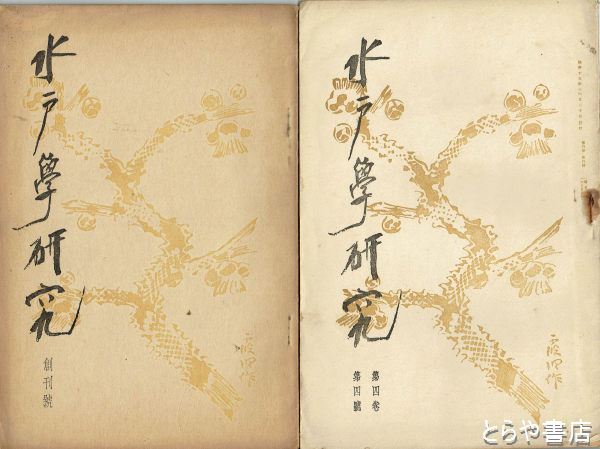 水戸學研究
創刊號
水戸學研究
第四卷
第四號
とらや書店